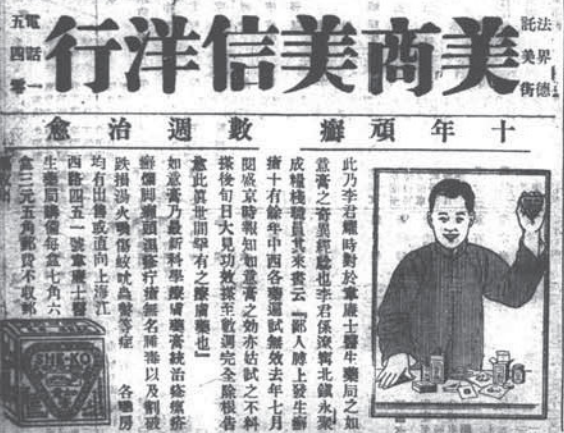 美商美信洋行
法界德
託美街
電話一
五四零
十年頑癬 數週治愈
此乃李君耀時對於韋廉士醫生藥局之如
意膏之奇異經驗也李君係遼寧北鎮永聚
成糧棧職員其來書云『鄙人脖上發生癬
瘡十有餘年中西各藥遍試無效去年七月
閱盛京時報知如意膏之効亦姑試之不料
搽後旬日大見功效搽至數週完全除根告
愈此眞世間罕有之療膚藥也』
如意膏乃最新科學療膚藥膏統治疥
癬爛脚癩頭濕疹疔瘡無名腫毒以及割破
跌損湯火傷蚊等症 各藥房
均有出售或直向上海江
西路四五一號韋廉士醫
生藥局購備每盒七角六
盒三元五角郵費不收郵
SHE-KO